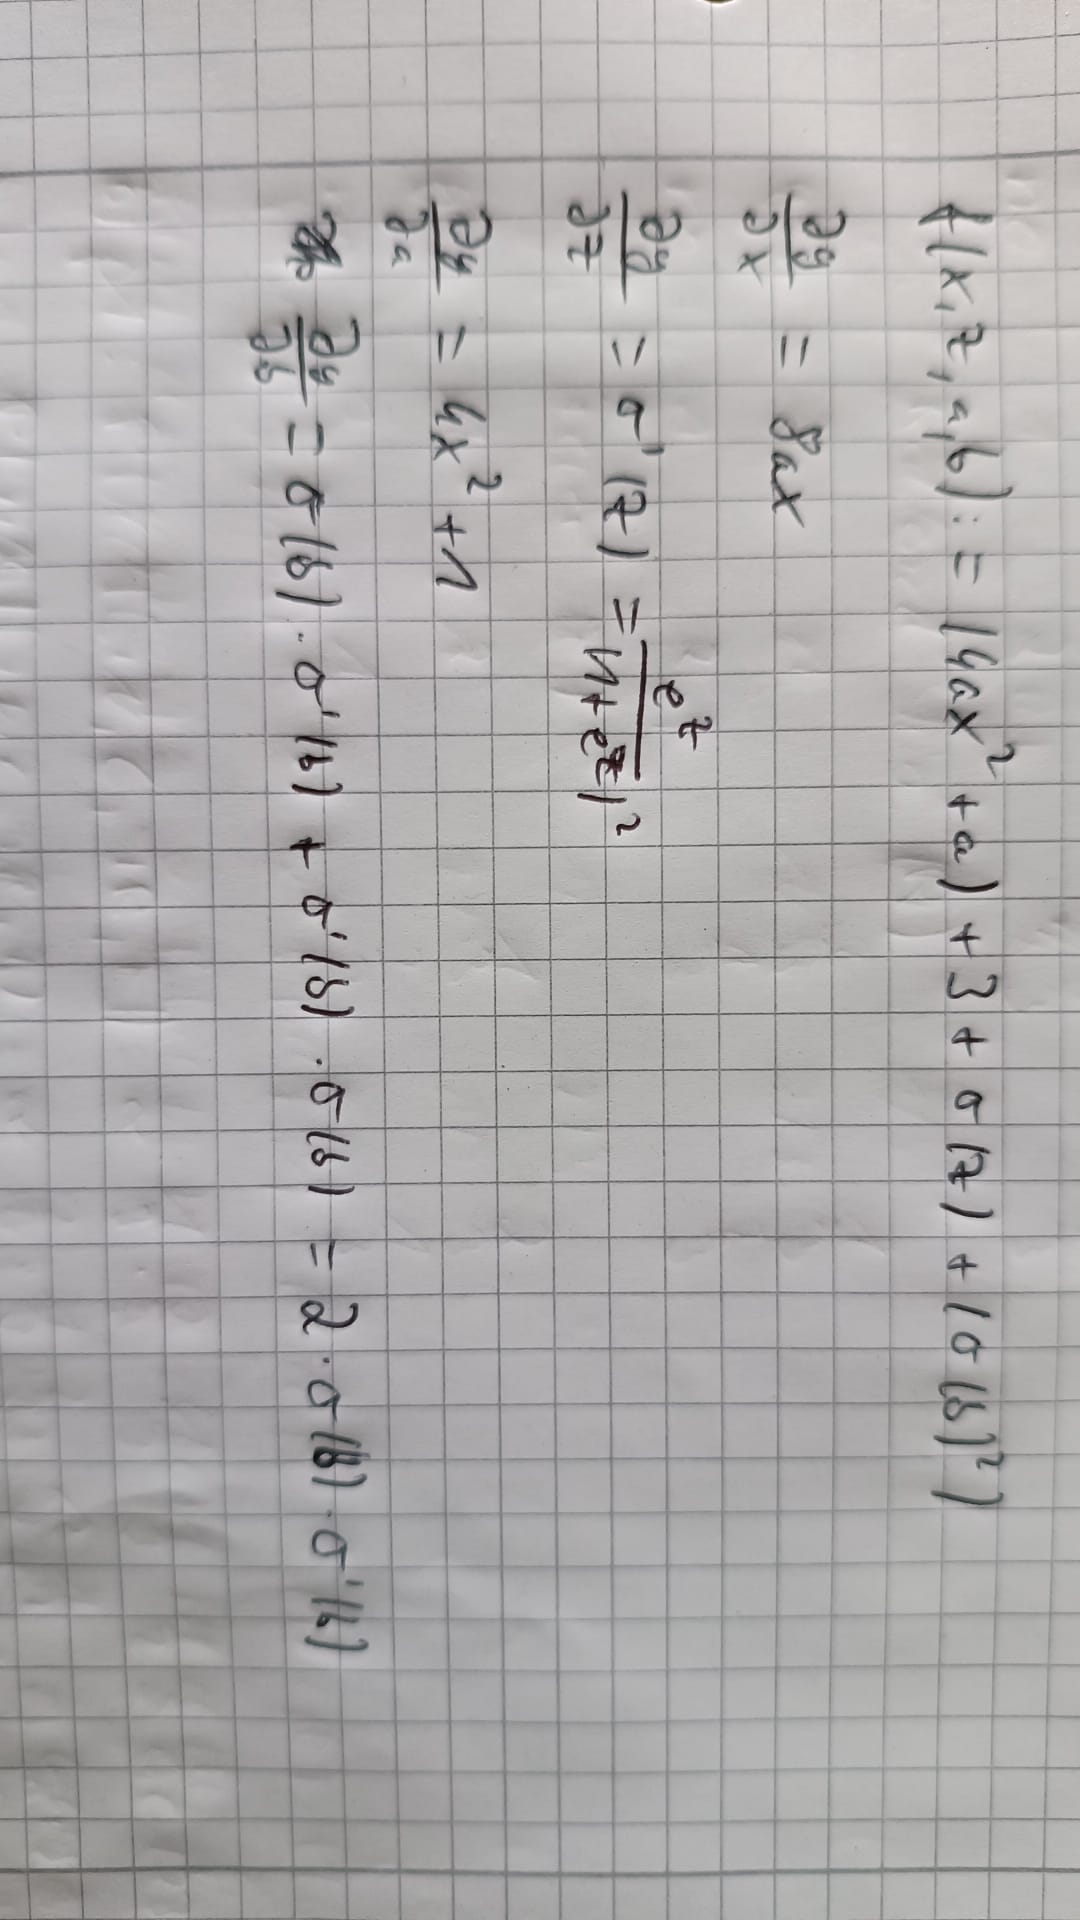 f(x,z,a,b) := (4ax² + a) + 3 + σ(z) + (σ(b)²)
∂y/∂x = 8ax
∂y/∂z = σ'(z) = e^z/(1+e^z)²
∂y/∂a = 4x² + 1
∂y/∂b = σ(b) · σ'(b) + σ'(b) · σ(b) = 2 · σ(b) · σ'(b)